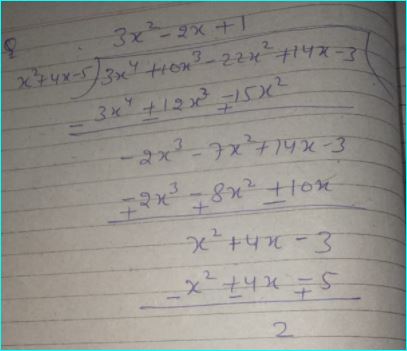 Q
3x² - 2x + 1
x² + 4x - 5 ) 3x⁴ + 10x³ - 22x² + 14x - 3 (
3x⁴ + 12x³ - 15x²
- - +
-2x³ - 7x² + 14x - 3
-2x³ - 8x² + 10x
+ + -
x² + 4x - 3
x² + 4x - 5
- - +
2